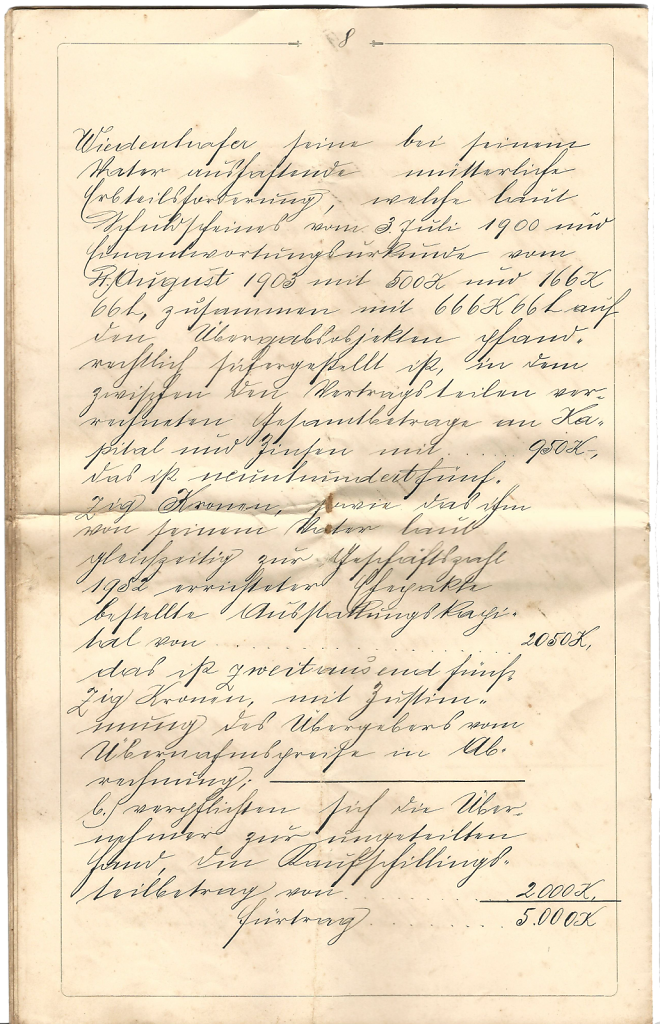 8
Wiedenhofer seine bei seinem
Vater aushaftende mütterliche
Erbteilsforderung, welche laut
Schuldscheines vom 3. Juli 1900 und
Einantwortungsurkunde vom
August 1903 mit 500K und 166K
66h, zusammen mit 666K 66h auf
den Übergabsobjekten pfand-
rechtlich sichergestellt ist, in dem
zwischen den Vertragsteilen ver-
rechneten Gesamtbetrage an Ka-
pital und Zinsen mit ..... 950K-,
das ist neunhundertfünf-
zig Kronen, sowie das ihm
von seinem Vater laut
gleichzeitig zur Geschäftszahl
1982 errichteter Ehepakte
bestellte Ausstattungskapi-
tal von .................... 2050K,
das ist zweitausend fünf-
zig Kronen, mit Zustim-
mung des Übergebers vom
Übernahmspreise in Ab-
rechnung;
b.) verpflichten sich die Über-
nehmer zur ungeteilten
Hand, den Kaufschillings-
teilbetrag von ............ 2000K,
Fürtrag ............ 5.000K